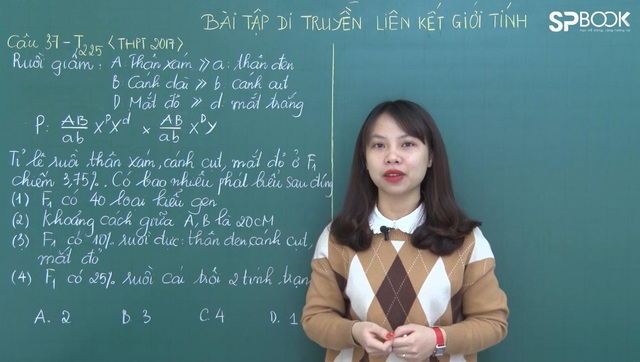 BÀI TẬP DI TRUYỀN LIÊN KẾT GIỚI TÍNH
SPBOOK
Câu 37 - T225 <THPT 2017>
Ruồi giấm: A Thân xám >> a: thân đen
B Cánh dài >> b: cánh cụt
D Mắt đỏ >> d mắt trắng
P: AB/ab X^D X^d × AB/ab X^D Y
Tỉ lệ ruồi thân xám, cánh cụt, mắt đỏ ở F1
chiếm 3,75%. Có bao nhiêu phát biểu sau đúng
(1) F1 có 40 loại kiểu gen
(2) Khoảng cách giữa A, B là 20cM
(3) F1 có 10% ruồi đực: thân đen cánh cụt,
mắt đỏ
(4) F1 có 25% ruồi cái trội 2 tính trạn
A. 2 B. 3 C. 4 D. 1